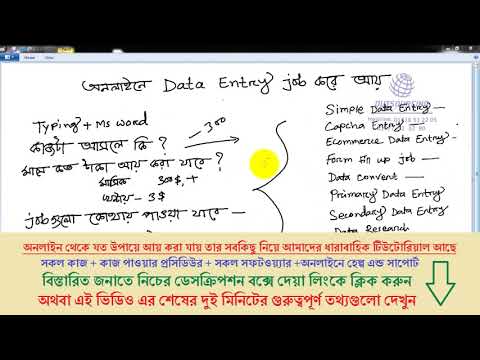 অনলাইনে Data Entry job করে আয়
OUTSOURCING
Typing + Ms word
কাজটা আসলে কি ?
300
মাসে কত টাকা আয় করা যাবে ?
মাসিক 300$, +
ঘন্টায় - 3$
jobগুলো কোথায় পাওয়া যাবে —
Simple Data Entry —
Capcha Entry —
Ecommerce Data Entry —
Form fill up job —
Data convert —
Primary Data Entry
Secondary Data Entry
অনলাইন থেকে যত উপায়ে আয় করা যায় তার সবকিছু নিয়ে আমাদের ধারাবাহিক টিউটোরিয়াল আছে
সকল কাজ + কাজ পাওয়ার প্রসিডিউর + সকল সফটওয়্যার +অনলাইনে হেল্প এন্ড সাপোর্ট
বিস্তারিত জানাতে নিচের ডেসক্রিপশন বক্সে দেয়া লিংকে ক্লিক করুন
অথবা এই ভিডিও এর শেষের দুই মিনিটের গুরুত্বপূর্ণ তথ্যগুলো দেখুন